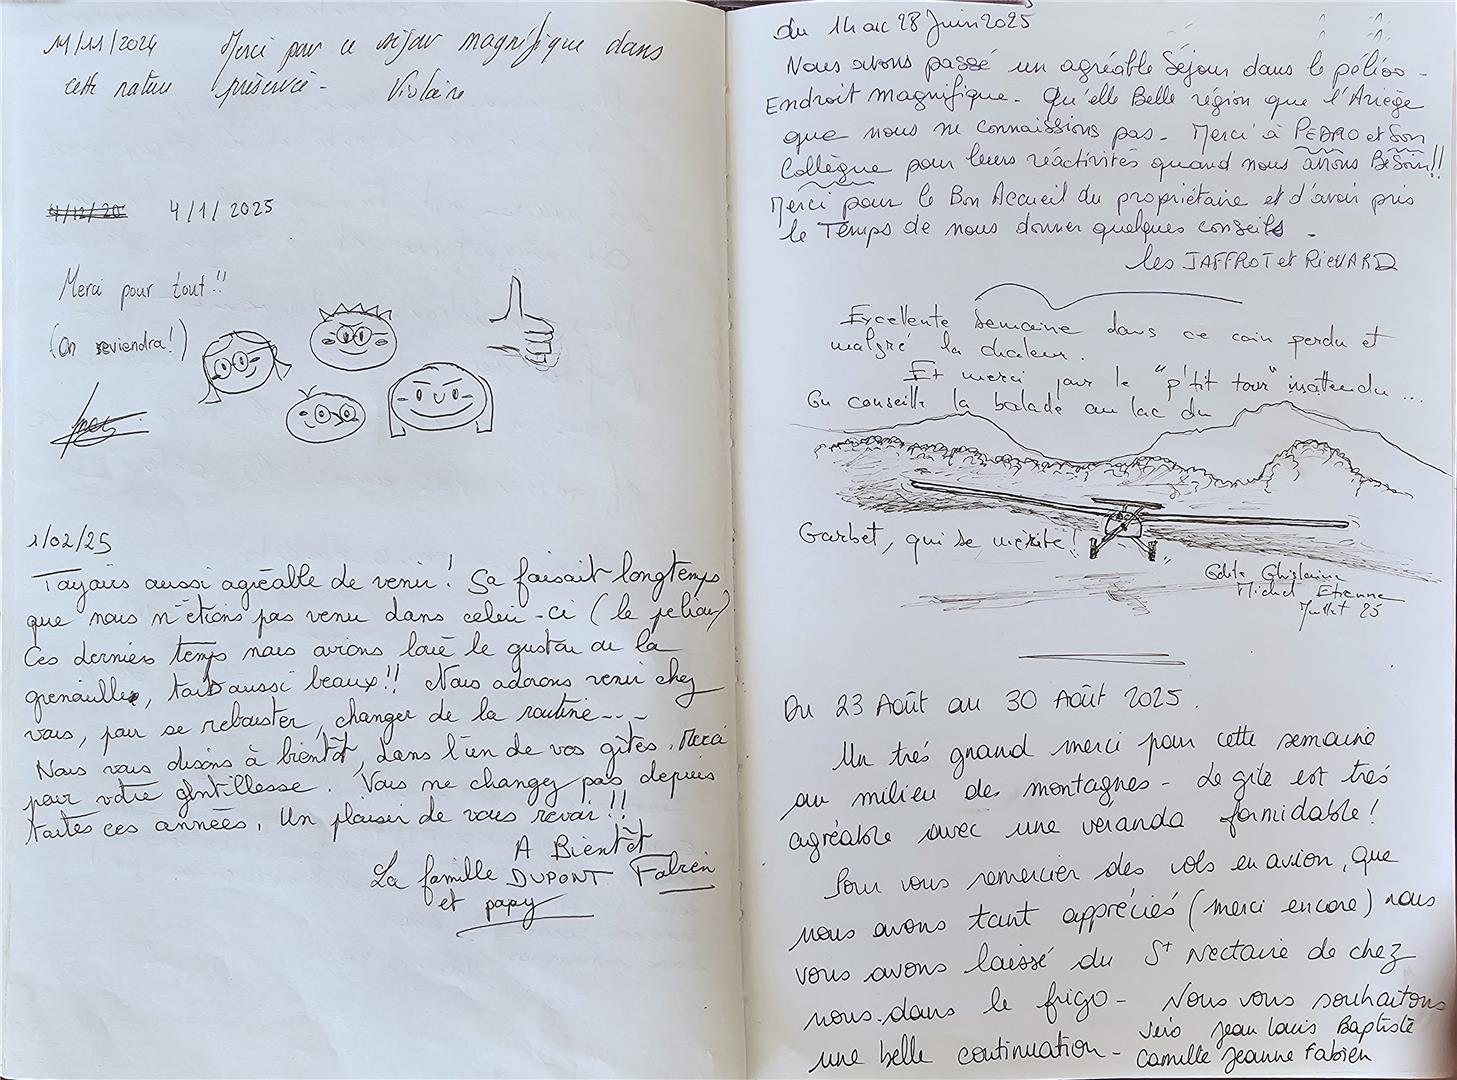 11/11/2024 Merci pour ce séjour magnifique dans
cette nature préservée - Violaine
4/12/20 4/1/2025
Merci pour tout !!
(On reviendra !)
1/02/25
Toujours aussi agréable de venir ! Sa faisait longtemps
que nous n'étions pas venu dans celui-ci (le pelious)
Ces derniers temps nous avions loué le gustou ou la
grenouille, tout aussi beaux !! Nous adorons venir chez
vous, pour se rebouster, changer de la routine - - -
Nous vous disons à bientôt, dans l'un de vos gîtes. Merci
pour votre gentillesse. Vous ne changez pas depuis
toutes ces années. Un plaisir de vous revoir !!
A Bientôt
La famille DUPONT Fabien
et papy
du 14 au 28 Juin 2025
Nous avons passé un agréable Séjour dans le pélioo -
Endroit magnifique - Qu'elle Belle région que l'Ariège
que nous ne connaissions pas - Merci à PEDRO et Son
Collègue pour leurs réactivités quand nous avions BeSoin !!
Merci pour le Bon Accueil du propriétaire et d'avoir pris
le Temps de nous donner quelques conseils -
les JAFFROT et RICHARD
Excellente Semaine dans ce coin perdu et
malgré la chaleur.
Et merci pour le "p'tit tour" inattendu ...
On conseille la balade au lac du
Garbet, qui se mérite !
Edith Ghislaine
Michel Etienne
Juillet 25
Du 23 Août au 30 Août 2025.
Un très grand merci pour cette semaine
au milieu des montagnes - Le gîte est très
agréable avec une véranda formidable !
Pour vous remercier des vols en avion, que
nous avons tant appréciés (merci encore) nous
vous avons laissé du St Nectaire de chez
nous dans le frigo - Nous vous souhaitons
une belle continuation - Jean Louis Baptiste
Camille Jeanne Fabien